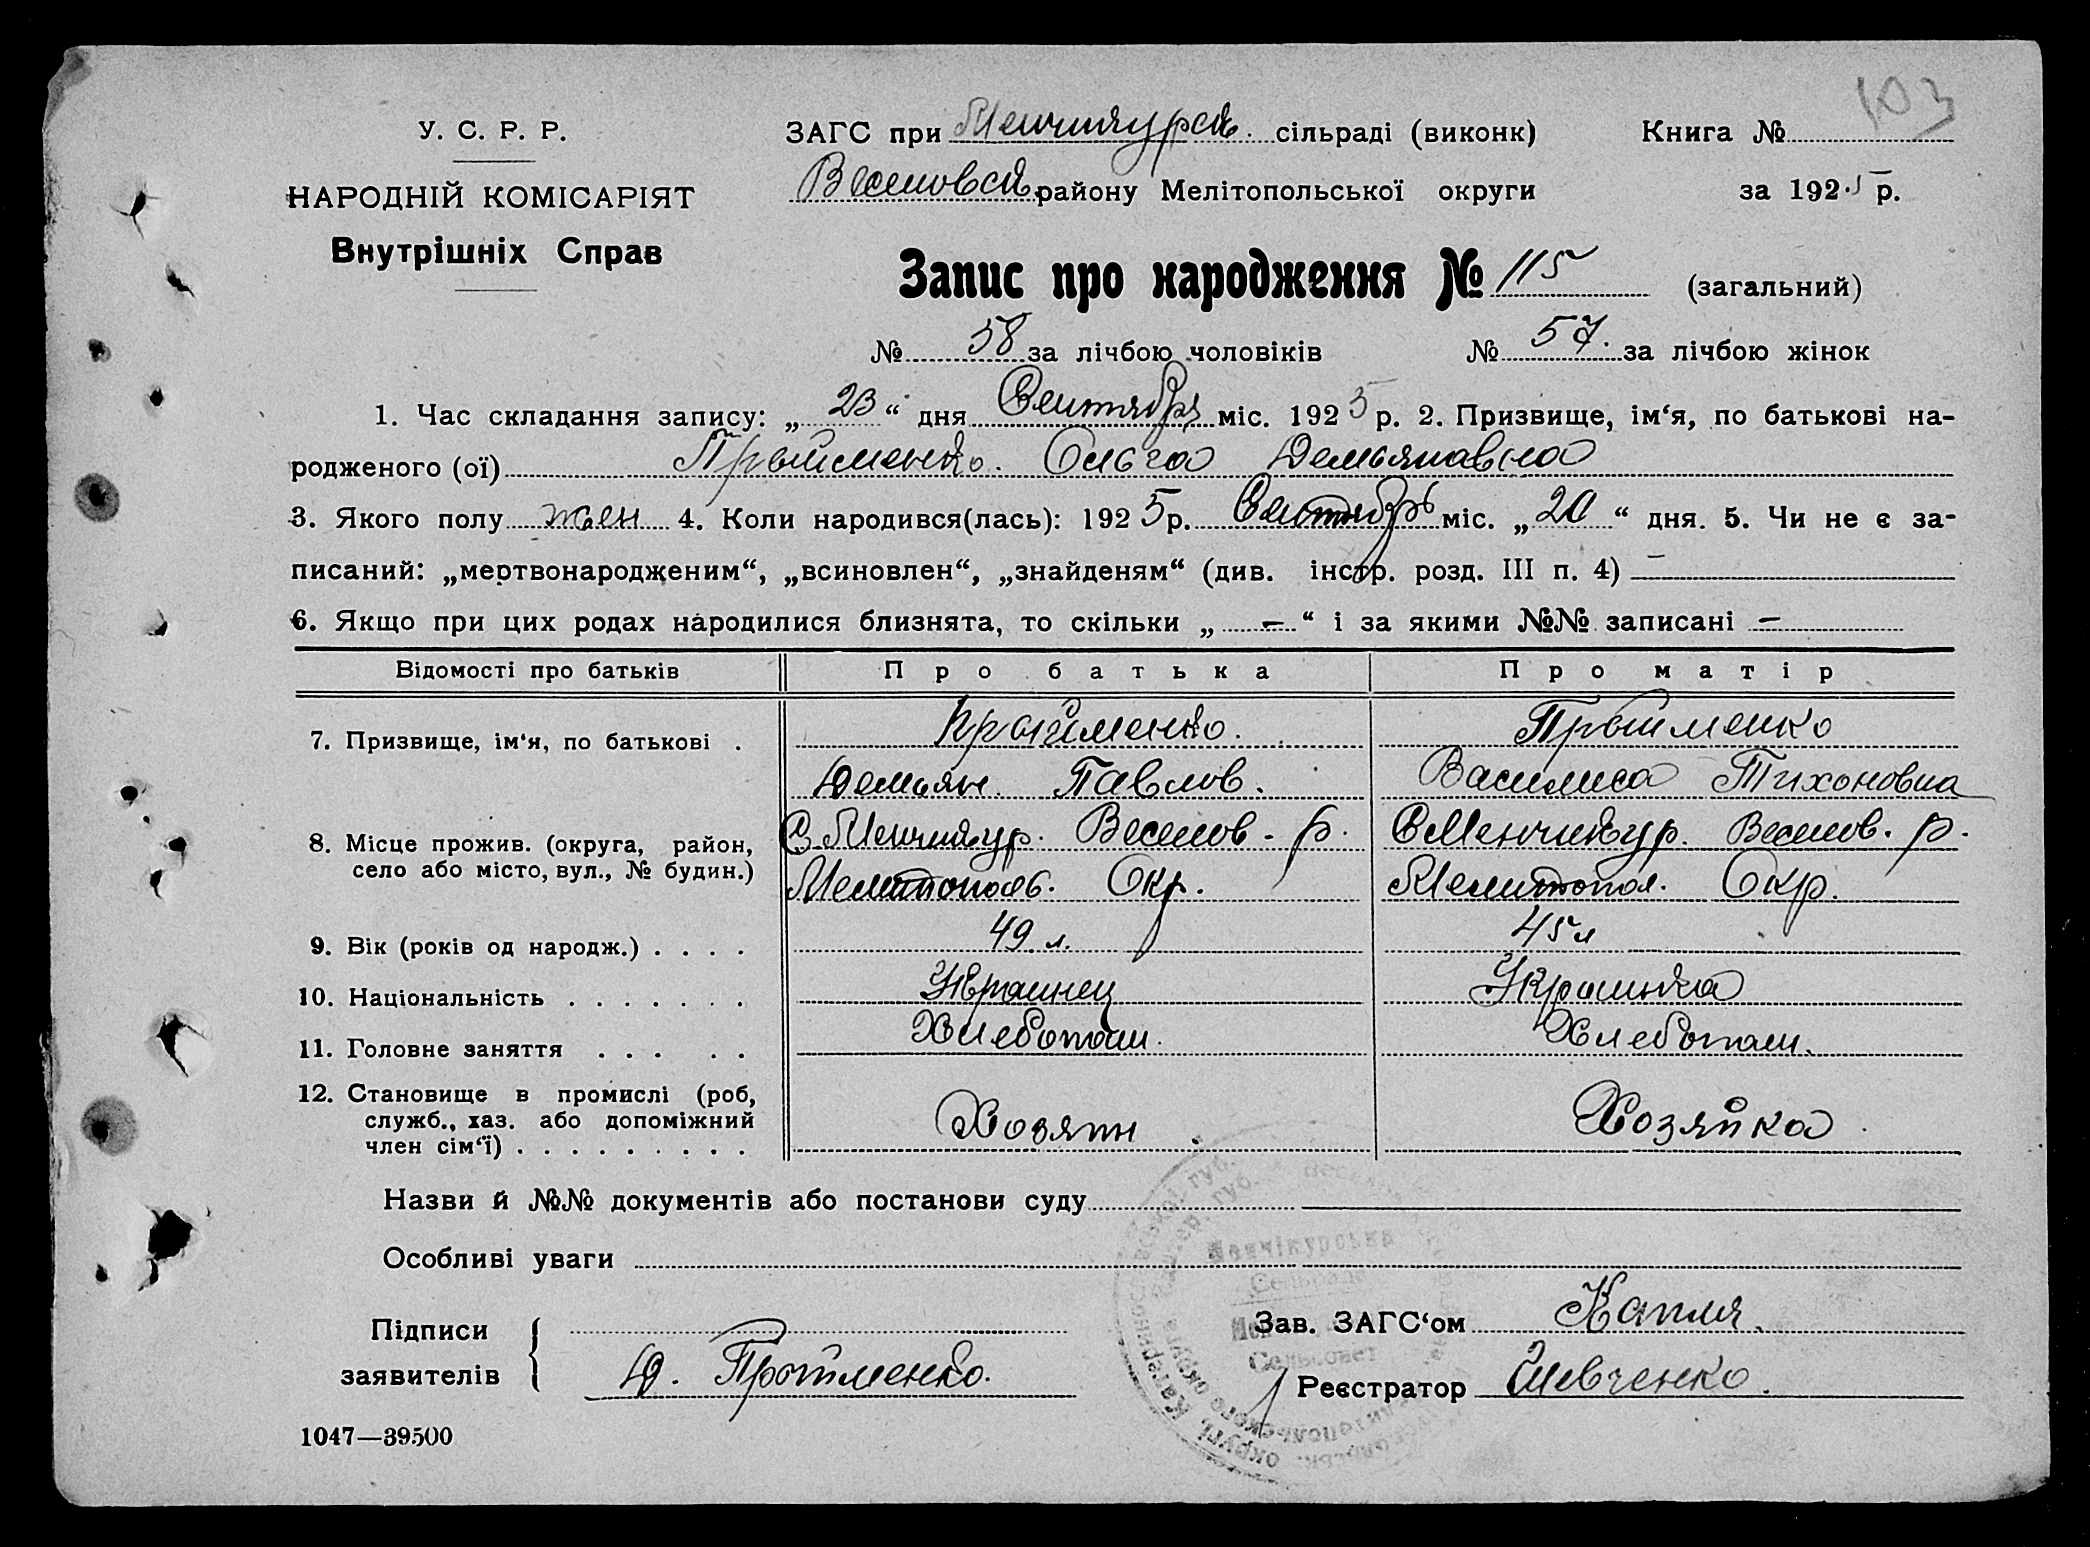 103
У. С. Р. Р.
ЗАГС при Менчикурск. сільраді (виконк)
Книга №
НАРОДНІЙ КОМІСАРІЯТ
Веселовск. району Мелітопольської округи
за 1925 р.
Внутрішніх Справ
Запис про народження № 115 (загальний)
№ 58 за лічбою чоловіків № 57. за лічбою жінок
1. Час складання запису: „ 23 “ дня Сентября міс. 1925 р. 2. Призвище, ім‘я, по батькові на-
родженого (ої) Прыйменко. Ольга Демьяновна
3. Якого полу жен 4. Коли народився(лась): 1925 р. Сентябрь міс. „ 20 “ дня. 5. Чи не є за-
писаний: „мертвонародженим“, „всиновлен“, „знайденям“ (див. інстр. розд. III п. 4) —
6. Якщо при цих родах народилися близнята, то скільки „ — “ і за якими №№ записані —
Відомості про батьків Про батька Про матір
7. Призвище, ім‘я, по батькові . Прыйменко. Прыйменко
Демьян Павлов. Василиса Тихоновна
8. Місце прожив. (округа, район, С. Менчикур. Веселов. р. С Менчикур. Веселов. р.
село або місто, вул., № будин.) Мелитополь. Окр. Мелитопол. Окр.
9. Вік (років од народж.) . . . . 49 л. 45 л
10. Національність . . . . . . . Украинец Украинка
11. Головне заняття . . . . . Хлебопаш. Хлебопаш.
12. Становище в промислі (роб,
служб., хаз. або допоміжний Хозяин Хозяйка
член сім‘ї) . . . . . . . . .
Назви й №№ документів або постанови суду
Особливі уваги
Менчікурська
Сельрада
Сельсовет
Підписи
заявителів
Д. Прыйменко.
Зав. ЗАГС‘ом Капля
Реєстратор Шевченко.
1047—39500